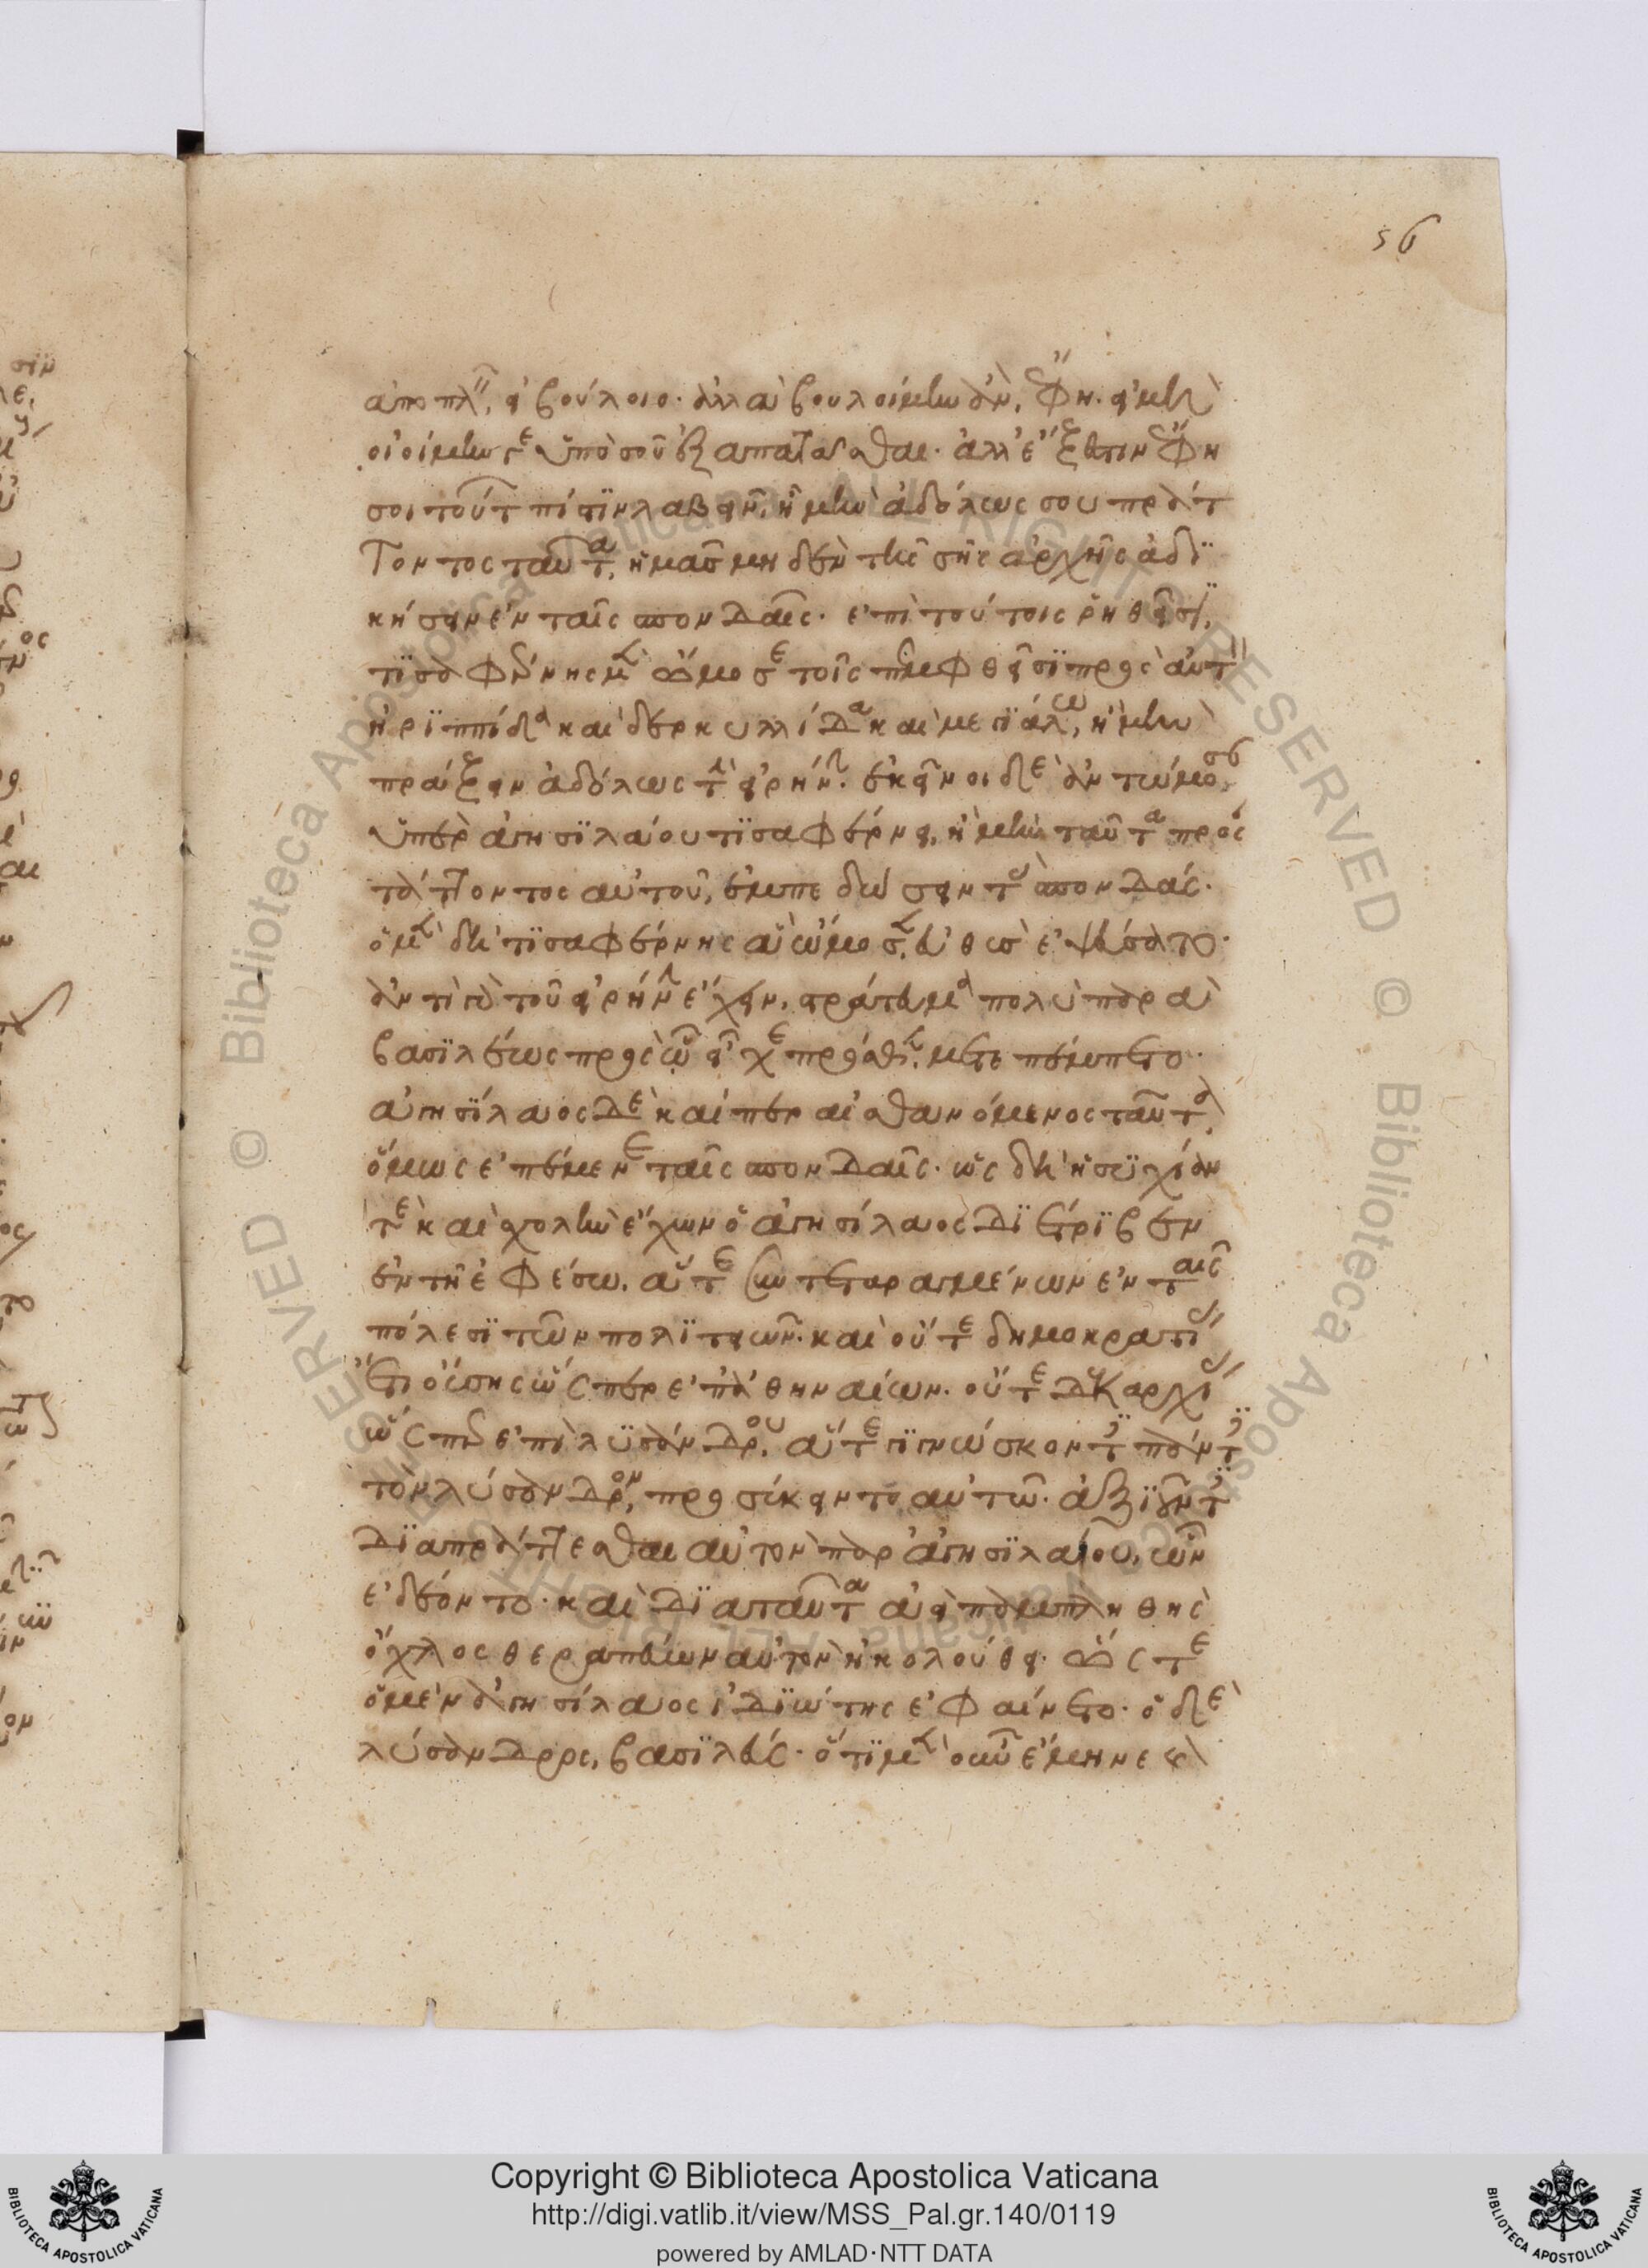 56
ἀποπλέοις, εἰ βούλοιο. ἀλλὰ βουλοίμην ἄν, ἔφη. εἰ μὴ
οἰοίμην γε ὑπὸ σοῦ ἐξαπατᾶσθαι. ἀλλ' ἔξεστιν ἔφη
σοι τούτων πίστιν λαβεῖν, ἦ μὴν ἀδόλως σου πράτ
τοντος ταῦτα, ἡμᾶς μηδὲν τῆς σῆς ἀρχῆς ἀδι
κήσειν ἐν ταῖς σπονδαῖς. ἐπὶ τούτοις ῥηθεῖσι,
τισσαφέρνης μὲν ὤμοσε τοῖς πεμφθεῖσι πρὸς αὐτὸν
ἠριππίδα καὶ δερκυλλίδα καὶ μεγιάλω, ἦ μὴν
πράξειν ἀδόλως τὴν εἰρήνην. ἐκεῖνοι δὲ ἀντώμοσαν
ὑπὲρ ἀγησιλάου τισσαφέρνει, ἦ μὴν ταῦτα πράτ
τοντος αὐτοῦ, ἐμπεδώσειν τὰς σπονδάς.
ὁ μὲν δὴ τισσαφέρνης ἃ ὤμοσεν, εὐθὺς ἐψεύσατο.
ἀντὶ γὰρ τοῦ εἰρήνην ἔχειν, στράτευμα πολὺ παρὰ
βασιλέως πρὸς ᾧ εἶχε πρόσθεν, μετεπέμπετο.
ἀγησίλαος δὲ καίπερ αἰσθανόμενος ταῦτα,
ὅμως ἐπέμενε ταῖς σπονδαῖς. ὡς δὴ ἡσυχίαν
τε καὶ σχολὴν ἔχων ὁ ἀγησίλαος διέτριβεν
ἐν τῇ ἐφέσω. ἅτε συντεταραγμένων ἐν ταῖς
πόλεσι τῶν πολιτειῶν. καὶ οὔτε δημοκρατίας
ἔτι οὔσης ὥσπερ ἐπ' ἀθηναίων. οὔτε δεκαρχίας
ὥσπερ ἐπὶ λυσάνδρου, ἅτε γιγνώσκοντες πάντες
τὸν λύσανδρον, προσέκειντο αὐτῷ. ἀξιοῦντες
διαπράττεσθαι αὐτὸν παρ' ἀγησιλάου, ὧν
ἐδέοντο. καὶ διὰ ταῦτα ἀεὶ παμπληθὴς
ὄχλος θεραπεύων αὐτὸν ἠκολούθει. ὥστε
ὁ μὲν ἀγησίλαος ἰδιώτης ἐφαίνετο. ὁ δὲ
λύσανδρος, βασιλεύς. ὅτι μὲν οὖν ἔμηνε καὶ
Copyright © Biblioteca Apostolica Vaticana
http://digi.vatlib.it/view/MSS_Pal.gr.140/0119
powered by AMLAD·NTT DATA